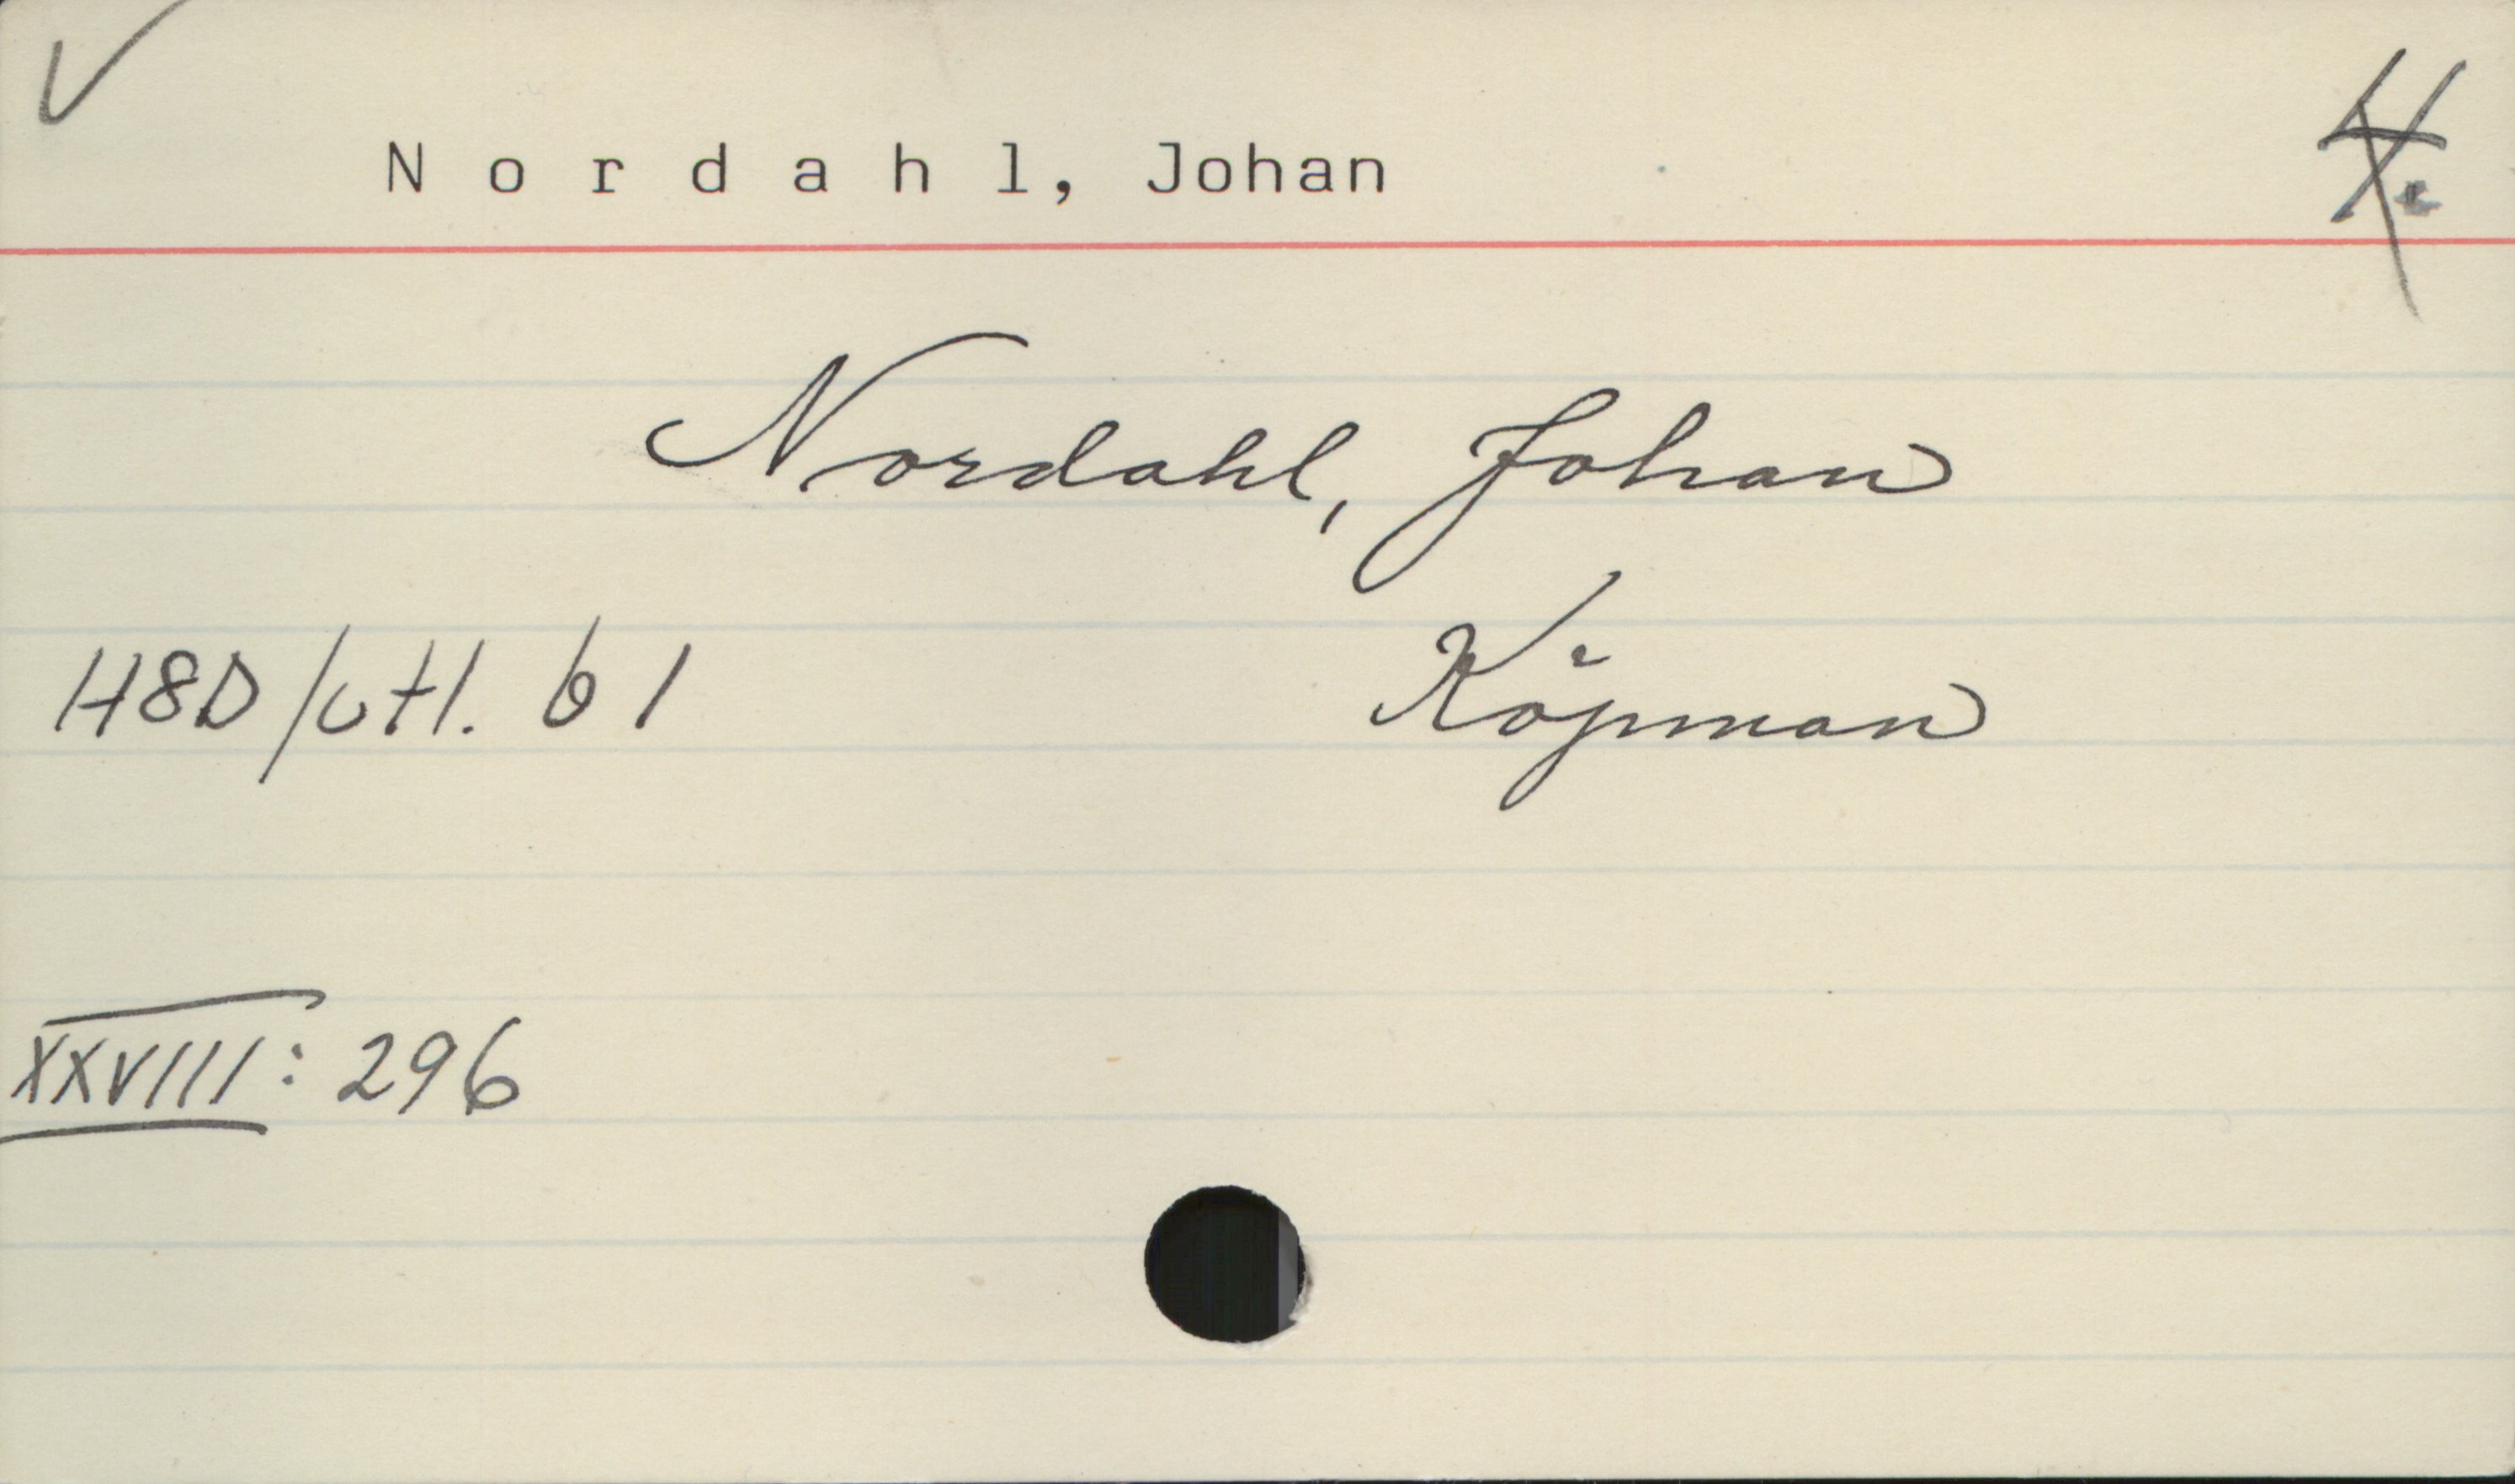 Nordahl, Johan
Nordahl, Johan
H8D/utl. b 1 Köpman
XXVIII: 296